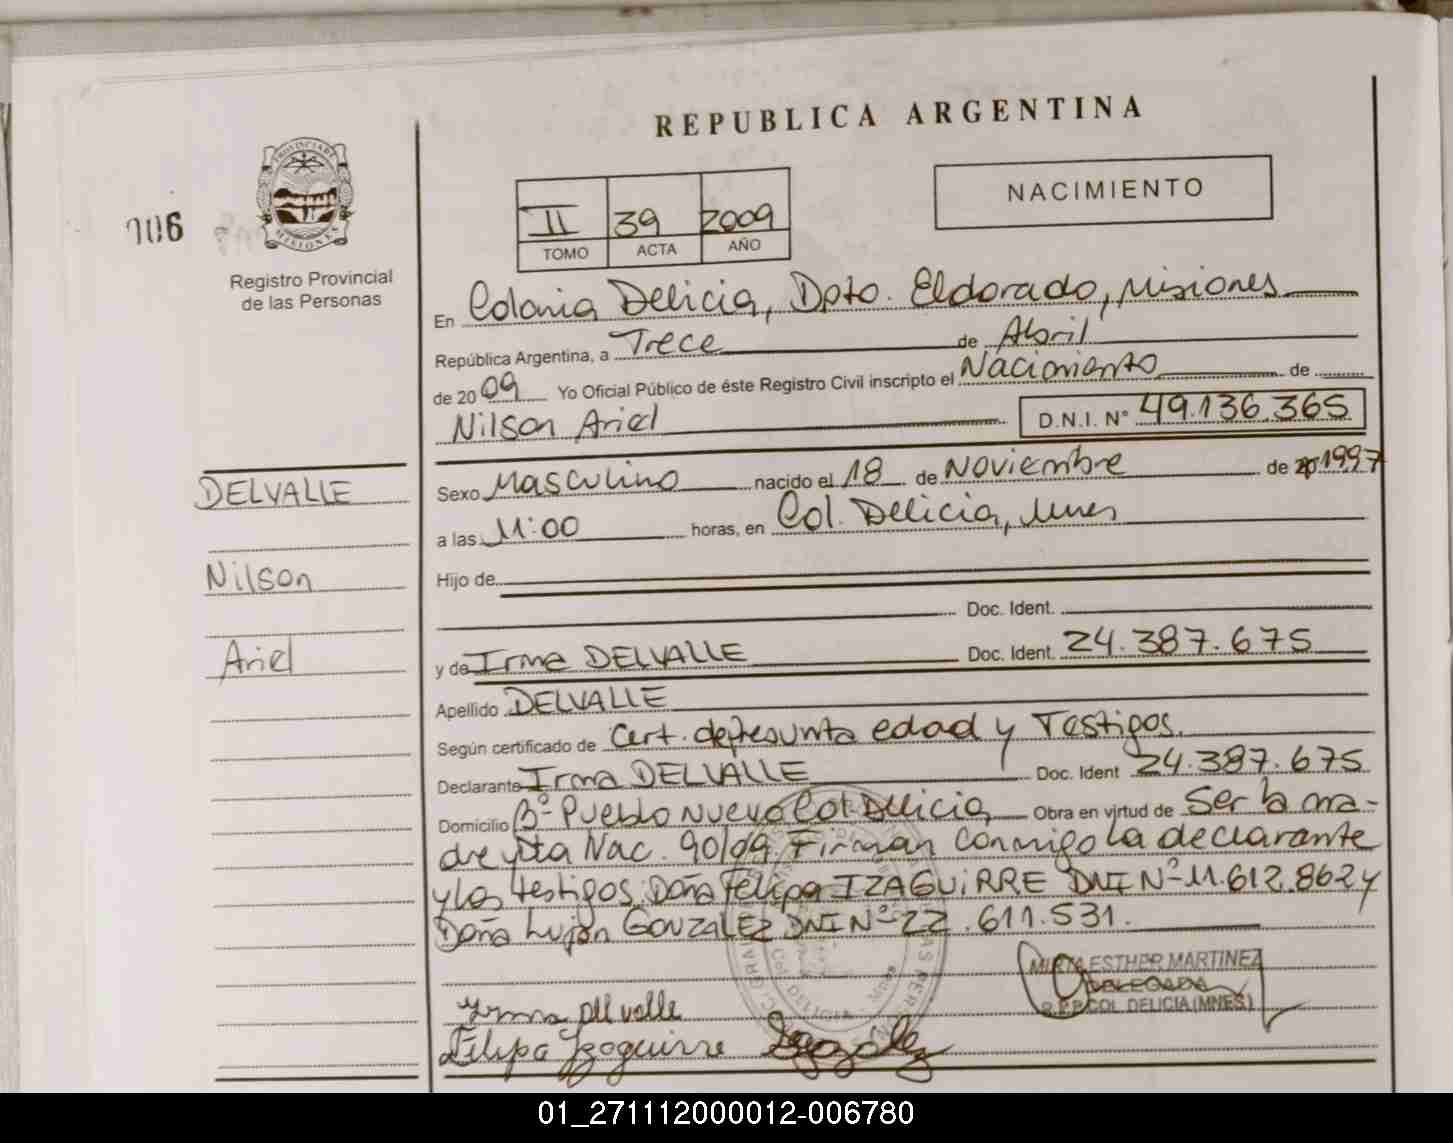 REPUBLICA ARGENTINA
NACIMIENTO
PROVINCIA DE
MISIONES
106
Registro Provincial
de las Personas
II 39 2009
TOMO ACTA AÑO
En Colonia Delicia, Dpto. Eldorado, Misiones
República Argentina, a Trece de Abril
de 2009 Yo Oficial Público de éste Registro Civil inscripto el Nacimiento de
Nilson Ariel D.N.I. N° 49.136.365
DELVALLE
Nilson
Ariel
Sexo Masculino nacido el 18 de Noviembre de 1997
a las 11:00 horas, en Col. Delicia, Mnes
Hijo de
Doc. Ident.
y de Irma DELVALLE Doc. Ident. 24.387.675
Apellido DELVALLE
Según certificado de Cert. de presunta edad y Testigos.
Declarante Irma DELVALLE Doc. Ident 24.387.675
Domicilio B° Pueblo Nuevo Col Delicia Obra en virtud de Ser la ma-
dre y Nac. 90/09, Firman conmigo la declarante
y los testigos: Doña Felipa IZAGUIRRE DNI N° 11.612.862 y
Doña Luján GONZALEZ DNI N° 22.611.531.
MIRTA ESTHER MARTINEZ
DELEGADA
R.P.P. COL. DELICIA (MNES)
Irma Delvalle
Felipa Izaguirre González
01_271112000012-006780